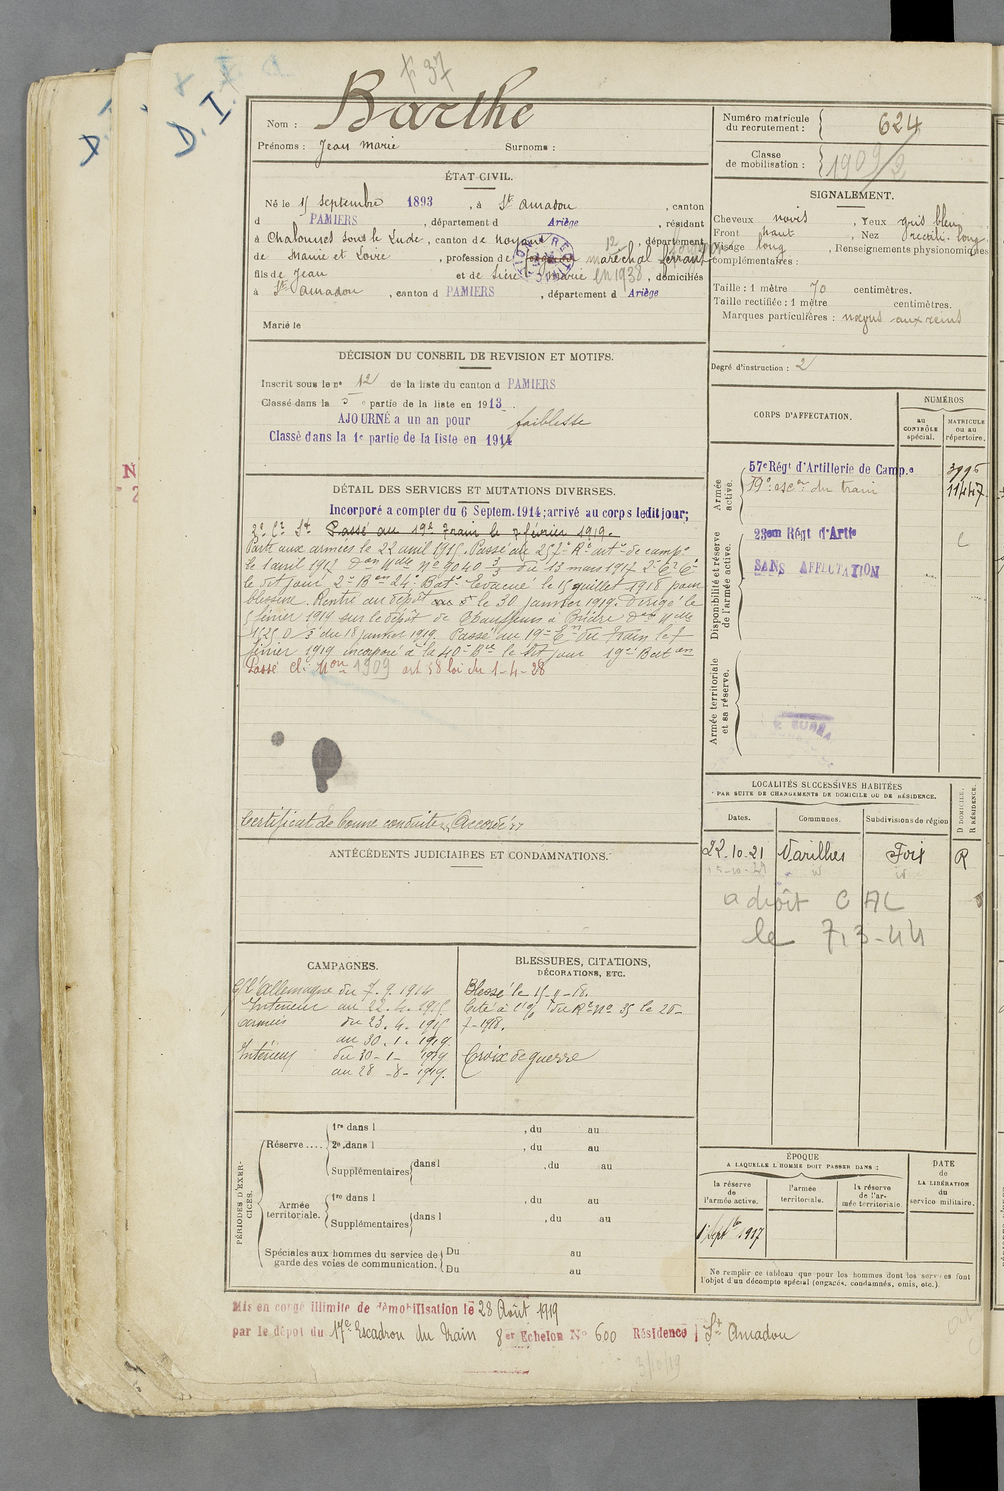 F 37
D. I.
D. I.
Nom : Barthe
Prénoms : Jean Marie Surnoms :
Numéro matricule du recrutement : 624
Classe de mobilisation : 1909/2
ÉTAT CIVIL.
Né le 15 Septembre 1893, à St Amadou, canton
d PAMIERS, département d Ariège, résidant
à Chalonnes sous le Lude, canton de Noyant, département
de Maine et Loire, profession de maréchal ferrant
fils de Jean et de Marie en 1938, domiciliés
à St Amadou, canton d PAMIERS, département d Ariège
Marié le
SIGNALEMENT.
Cheveux noirs, Yeux gris bleu
Front haut, Nez rectili. long
Visage long, Renseignements physionomiques
complémentaires :
Taille : 1 mètre 70 centimètres.
Taille rectifiée : 1 mètre centimètres.
Marques particulières : nœvus aux reins
Degré d'instruction : 2
DÉCISION DU CONSEIL DE REVISION ET MOTIFS.
Inscrit sous le no 12 de la liste du canton d PAMIERS
Classé dans la 5e partie de la liste en 1913.
AJOURNÉ a un an pour faiblesse
Classé dans la 1e partie de la liste en 1914
DÉTAIL DES SERVICES ET MUTATIONS DIVERSES.
Incorporé a compter du 6 Septem. 1914; arrivé au corps ledit jour;
2e Cr St Passé au 19e Train le 7 février 1919.
Parti aux armées le 22 avril 1915. Passé au 257e Rt artie de campe
le 1 avril 1917 Don Mlle No 9040 3/3 du 13 mars 1917
le dit jour. 2e Bie 24e Bate. Evacué le 15 juillet 1918 pour
blessure. Rentré au dépôt le 30 janvier 1919. Dirigé le
5 février 1919 sur le dépôt de Chauffeurs a
du 18 janvier 1919. Passé au 19e Er du Train le 7
février 1919 incorporé à la 40e Bie le dit jour 19e Bat on
Passé cl. Mon 1909 art 58 loi du 1-4-28
Certificat de bonne conduite "Accordé"
CORPS D'AFFECTATION.
NUMÉROS
au CONTRÔLE spécial.
MATRICULE ou au répertoire.
Armée active.
57e Régt d'Artillerie de Camp.e 3996
19e escon du train 11447
Disponibilité et réserve de l'armée active.
23em Régt d'Artie
SANS AFFECTATION
Armée territoriale et sa réserve.
LOCALITÉS SUCCESSIVES HABITÉES
PAR SUITE DE CHANGEMENTS DE DOMICILE OU DE RÉSIDENCE.
Dates. Communes. Subdivisions de région
D DOMICILE. R RÉSIDENCE.
22.10.21 Varilhes Foix R
a droit C AL
le 7.3-44
ANTÉCÉDENTS JUDICIAIRES ET CONDAMNATIONS.
CAMPAGNES.
C/ l'Allemagne du 7.9.1914
Intérieur au 22.4.1915
Armées du 23.4.1915
au 30.1.1919.
Intérieur du 30-1-1919
au 28-8-1919.
BLESSURES, CITATIONS, DÉCORATIONS, ETC.
Blessé le 15-7-18.
Cité à l'o/ du Rt No 35 le 26-
7-1918.
Croix de guerre
PÉRIODES D'EXERCICES.
Réserve....
1re dans l , du au
2e dans l , du au
Supplémentaires dans l , du au
Armée territoriale.
1re dans l , du au
Supplémentaires dans l , du au
Spéciales aux hommes du service de garde des voies de communication.
Du au
Du au
ÉPOQUE
A LAQUELLE L'HOMME DOIT PASSER DANS :
la réserve de l'armée active.
l'armée territoriale.
la réserve de l'armée territoriale.
DATE de LA LIBÉRATION du service militaire.
1 Septbre 1917
Ne remplir ce tableau que pour les hommes dont les services font
l'objet d'un décompte spécial (engagés, condamnés, omis, etc.).
Mis en congé illimité de démobilisation le 28 Août 1919
par le dépôt du 17e Escadron du Train 8er Echelon No 600 Résidence St Amadou
3/10/19